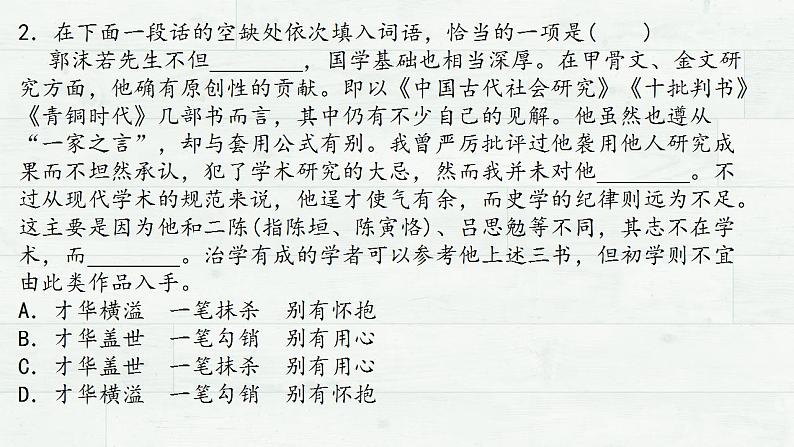 2．在下面一段话的空缺处依次填入词语，恰当的一项是(　　)
郭沫若先生不但________，国学基础也相当深厚。在甲骨文、金文研
究方面，他确有原创性的贡献。即以《中国古代社会研究》《十批判书》
《青铜时代》几部书而言，其中仍有不少自己的见解。他虽然也遵从
“一家之言”，却与套用公式有别。我曾严厉批评过他袭用他人研究成
果而不坦然承认，犯了学术研究的大忌，然而我并未对他________。不
过从现代学术的规范来说，他逞才使气有余，而史学的纪律则远为不足。
这主要是因为他和二陈(指陈垣、陈寅恪)、吕思勉等不同，其志不在学
术，而________。治学有成的学者可以参考他上述三书，但初学则不宜
由此类作品入手。
A．才华横溢　一笔抹杀　别有怀抱
B．才华盖世　一笔勾销　别有用心
C．才华盖世　一笔抹杀　别有用心
D．才华横溢　一笔勾销　别有怀抱